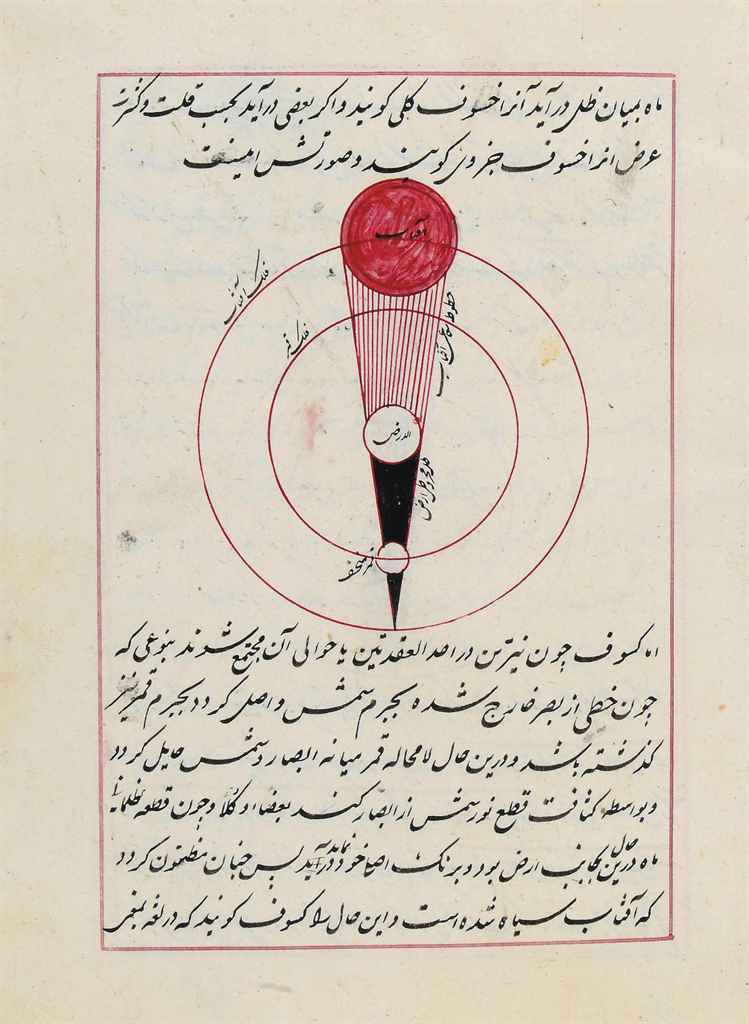 ماه بمیان ظل در آید آنرا خسوف کلی کویند و اکر بعضی در آید بحسب قلت و کثرت
عرض انرا خسوف جزوی کویند و صورتش اینست
آفتاب
فلک آفتاب
فلک قمر
خطوط شعاعی آفتاب
الارض
ظل مخروطی ارض
قمر منخسف
اما کسوف چون نیرین در احد العقدتین یا حوالی آن مجتمع شوند بنوعی که
چون خطی از بصر خارج شده بجرم شمس واصل کردد بجرم قمر نیز
کذشته باشد و درین حال لامحاله قمر میانه ابصار و شمس حایل کردد
و بواسطه کثافت قطع نور شمس از ابصار کند بعضا او کلا و چون قطعه ظلمانی
ماه درین حال بجانب ارض بود و برنک اصل خود در آید پس چنان مظنون کردد
که آفتاب سیاه شده است و این حال را کسوف کویند که در لغه بمعنی